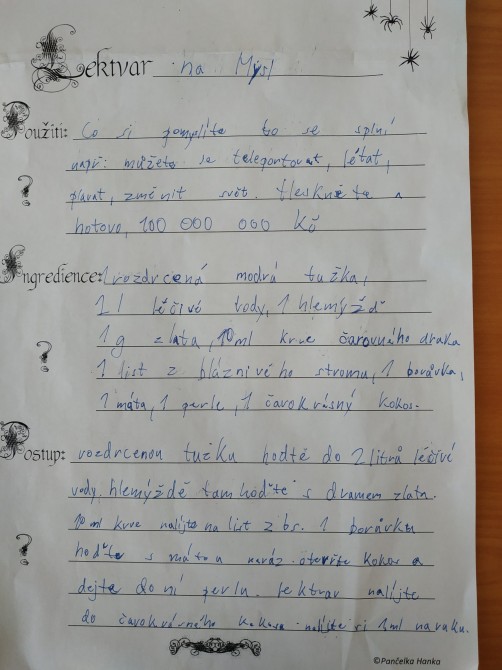 Lektvar na Mysl
Použití: Co si pomyslíte to se splní
např: můžete se teleportovat, létat,
plavat, změnit svět. tleskněte a
hotovo, 100 000 000 Kč
Ingredience: 1 rozdrcená modrá tužka,
2 l léčivé vody, 1 hlemýžď
1 g zlata, 10ml krve čarovného draka
1 list z bláznivého stromu, 1 borůvka,
1 máta, 1 perle, 1 čarokrásný kokos.
Postup: rozdrcenou tužku hodtě do 2 litrů léčivé
vody. hlemýždě tam hoďte s dramem zlata.
10 ml krve nalijte na list z bs. 1 borůvku
hoďte s mátou naráz. otevřte kokos a
dejte do ní perlu. lektvar nalijte
do čarokrásného kokosa nalijte si 1ml na ruku.
©Pančelka Hanka